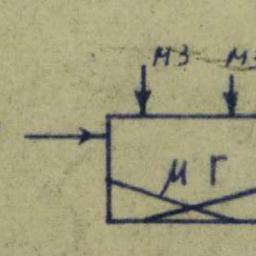 МЗ МЗ
М Г